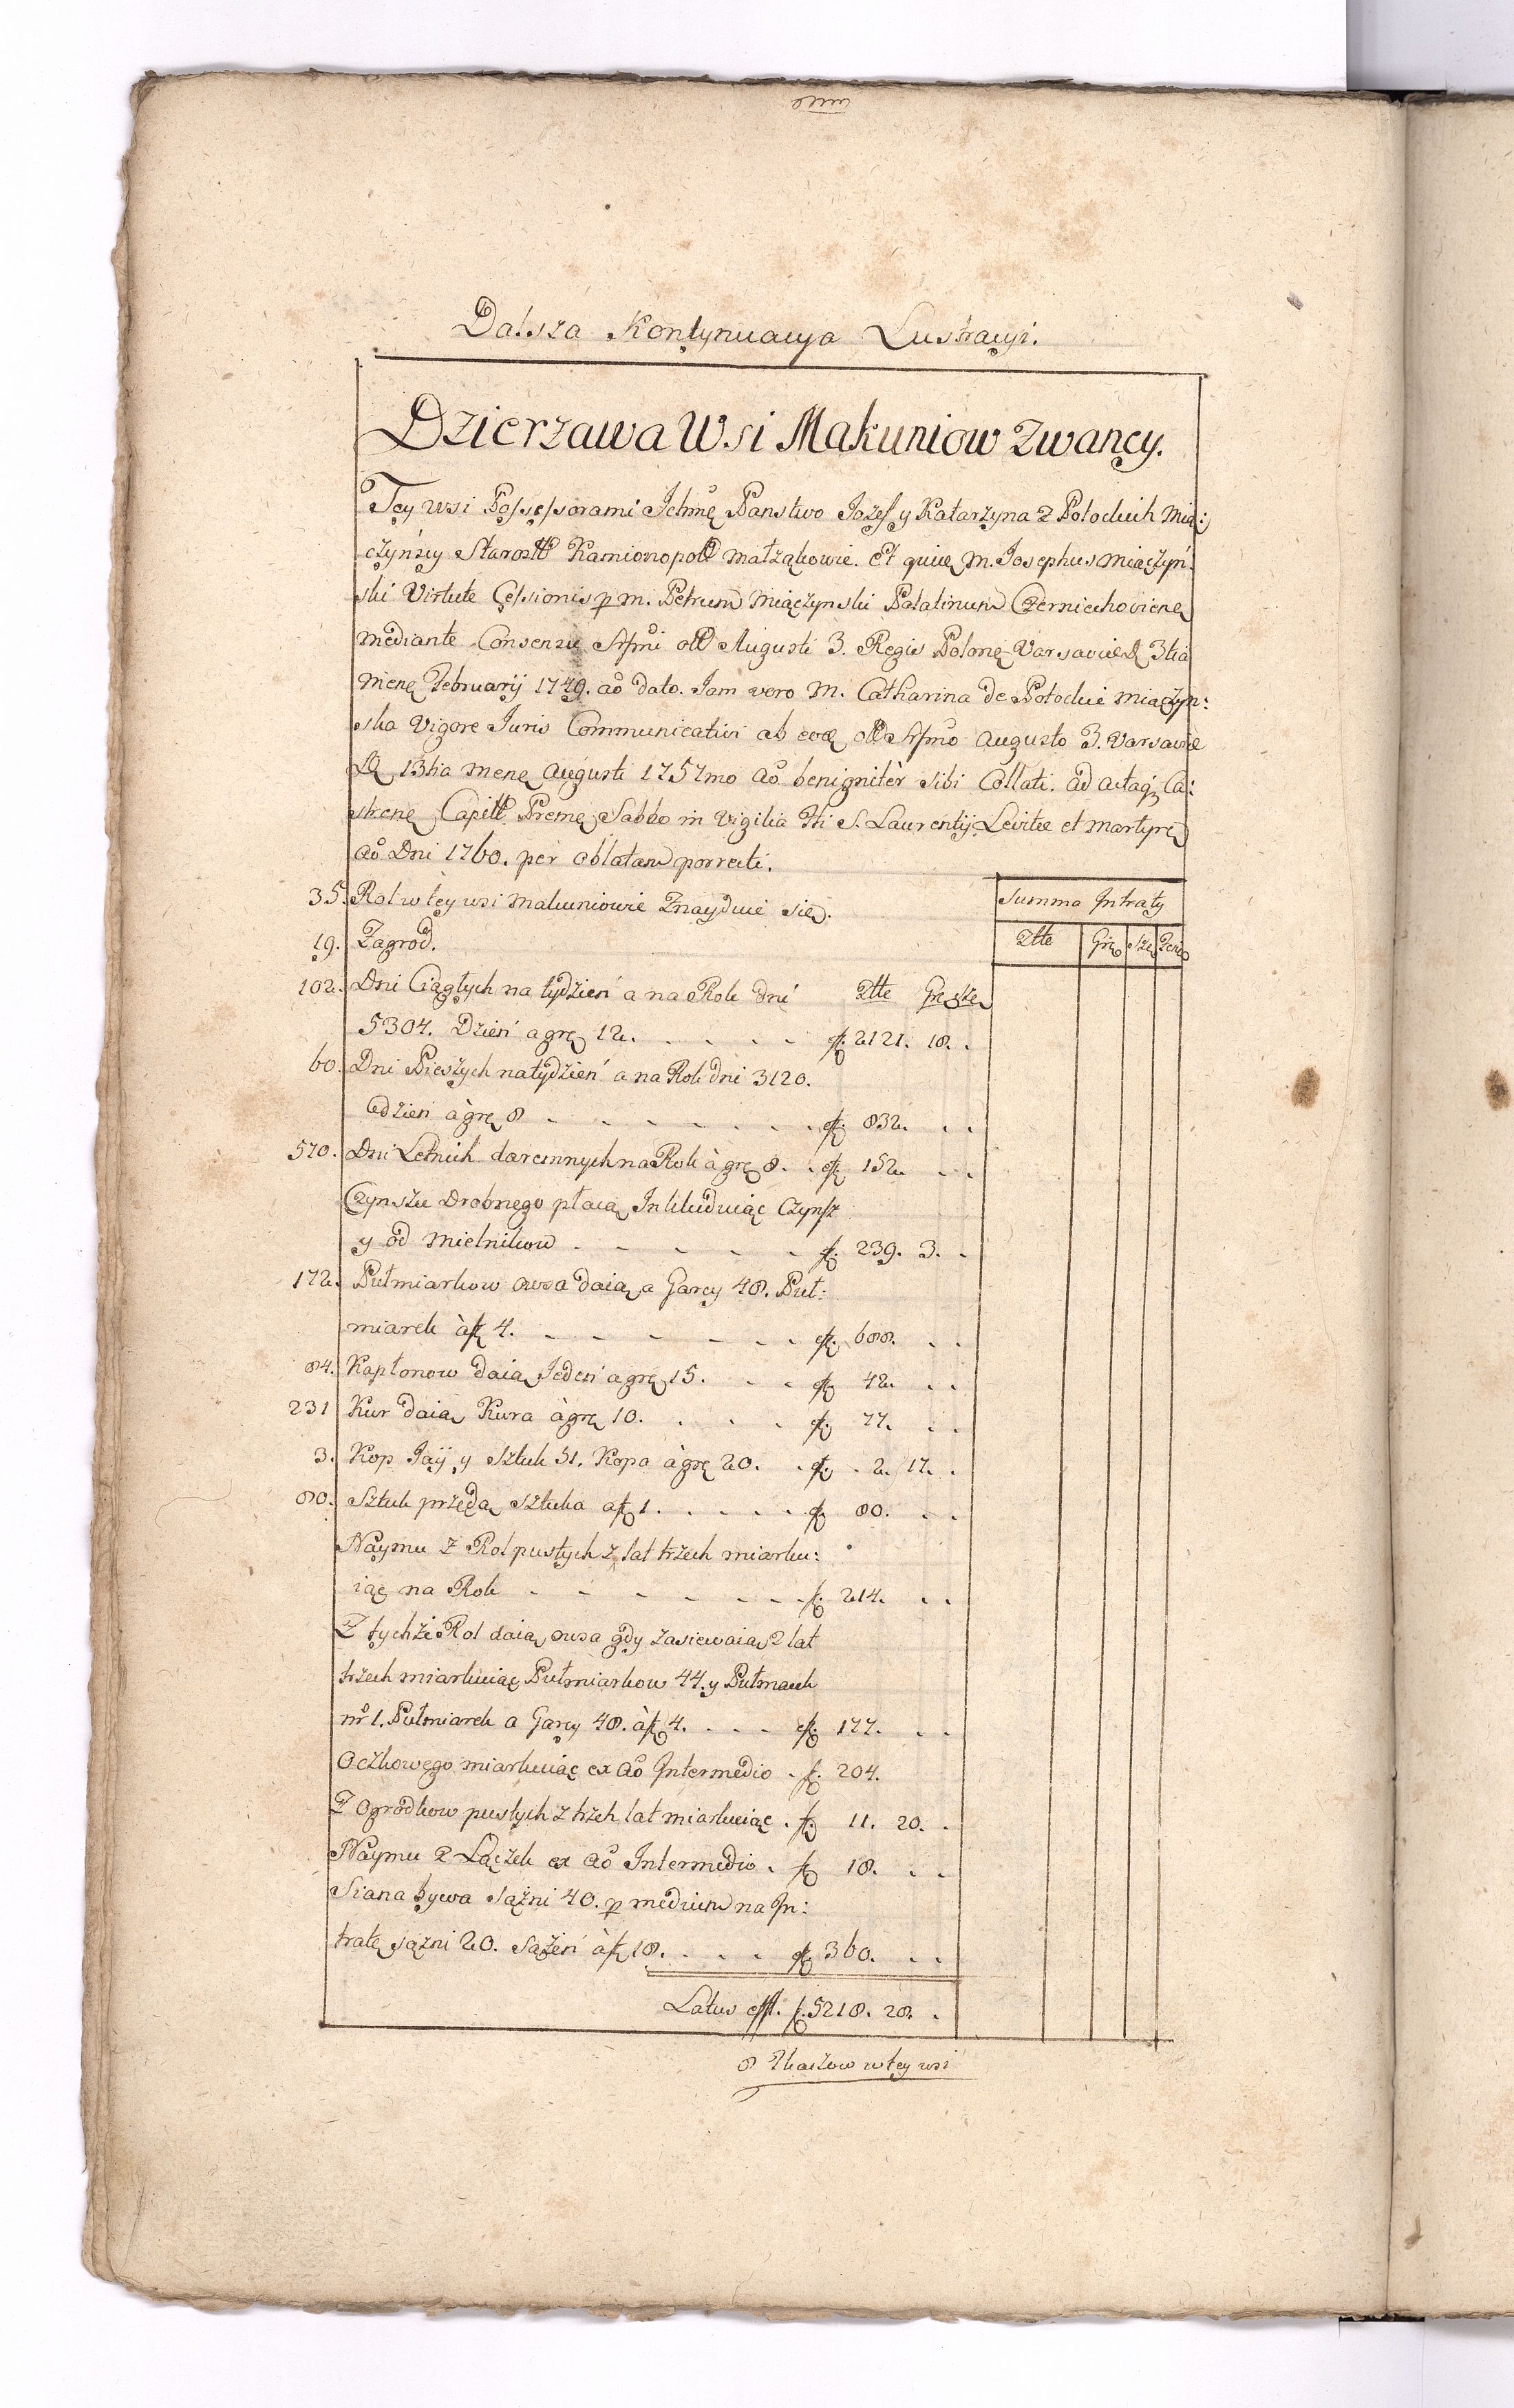 Dalsza Kontynuacya Lustracyi.
Dzierzawa Wsi Makuniow Zwaney.
Tey wsi Possessorami Ichmę Panstwo Jozef y Katarzyna z Potockich Mią:
czyńscy Starostt Kamionopoll Małząkowie. Et quię M. Josephus Miączyń:
ski Virtute Cessionis p M. Petrum Miączynski Palatinum Czerniechovienę
mediante Consensu Srfmi oll Augusti 3. Regis Polonę Varsavię D 3tia
Menę February 1749. ao dato. Iam vero M. Catharina de Potockie Miączyn:
ska Vigore Juris Communicativi ab eoq oll Srfmo Augusto 3. Varsavię
D 13tia menę Augusti 1757mo ao benignitèr sibi Collati. ad actaq Ca:
strenę Capitt Premę Sabbo in Vigilia fti S. Laurentij Levitę et Martyrę
ao Dni 1760. per oblatam porrecti.
Summa Intraty
35. Rol w tey wsi Makuniowie Znayduie się.
Ztte Grę Sze Penę
19. Zagrod.
102. Dni Ciągłych na tydzień a na Rok dni Ztte Grę Sze
5304. Dzień a grę 12. fl. 2121. 18.
60. Dni Pieszych na tydzień a na Rok dni 3120.
a dzień à grę 8 fl. 832.
570. Dni Letnich daremnych na Rok à grę 8. fl. 152
Czynszu Drobnego płacą Inkluduiąc Czynsz
y od Mielnikow fl. 239. 3.
172. Pułmiarkow owsa daią a Garcy 48. Puł:
miarek à fl 4. fl. 688.
84. Kapłonow daią Jeden a grę 15. fl 42.
231 Kur daią Kura à grę 10. fl. 77.
3. Kop Jaij y Sztuk 51. Kopa à grę 20. fl. 2. 17.
80. Sztuk przędą Sztuka a fl 1. fl 80.
Naymu z Rol pustych z lat trzech miarku:
iąc na Rok fl. 214.
Z tychże Rol daią owsa gdy zasiewaią z lat
trzech miarkuiąc Pułmiarkow 44. y Pułmacek
nro 1. Pułmiarek a Garcy 48. à fl 4. fl. 177.
Oczkowego miarkuiąc ex ao Intermedio fl. 204.
Z ogrodkow pustych z trzech lat miarkuiąc fl. 11. 20.
Naymu z Łączek ex ao Intermedio. fl 18.
Siana bywa Sążni 40. p medium na In:
tratę sążni 20. Sążeń à fl 18. fl 360.
Latus eff. fl. 5218. 28.
8 Tkaczow w tey wsi